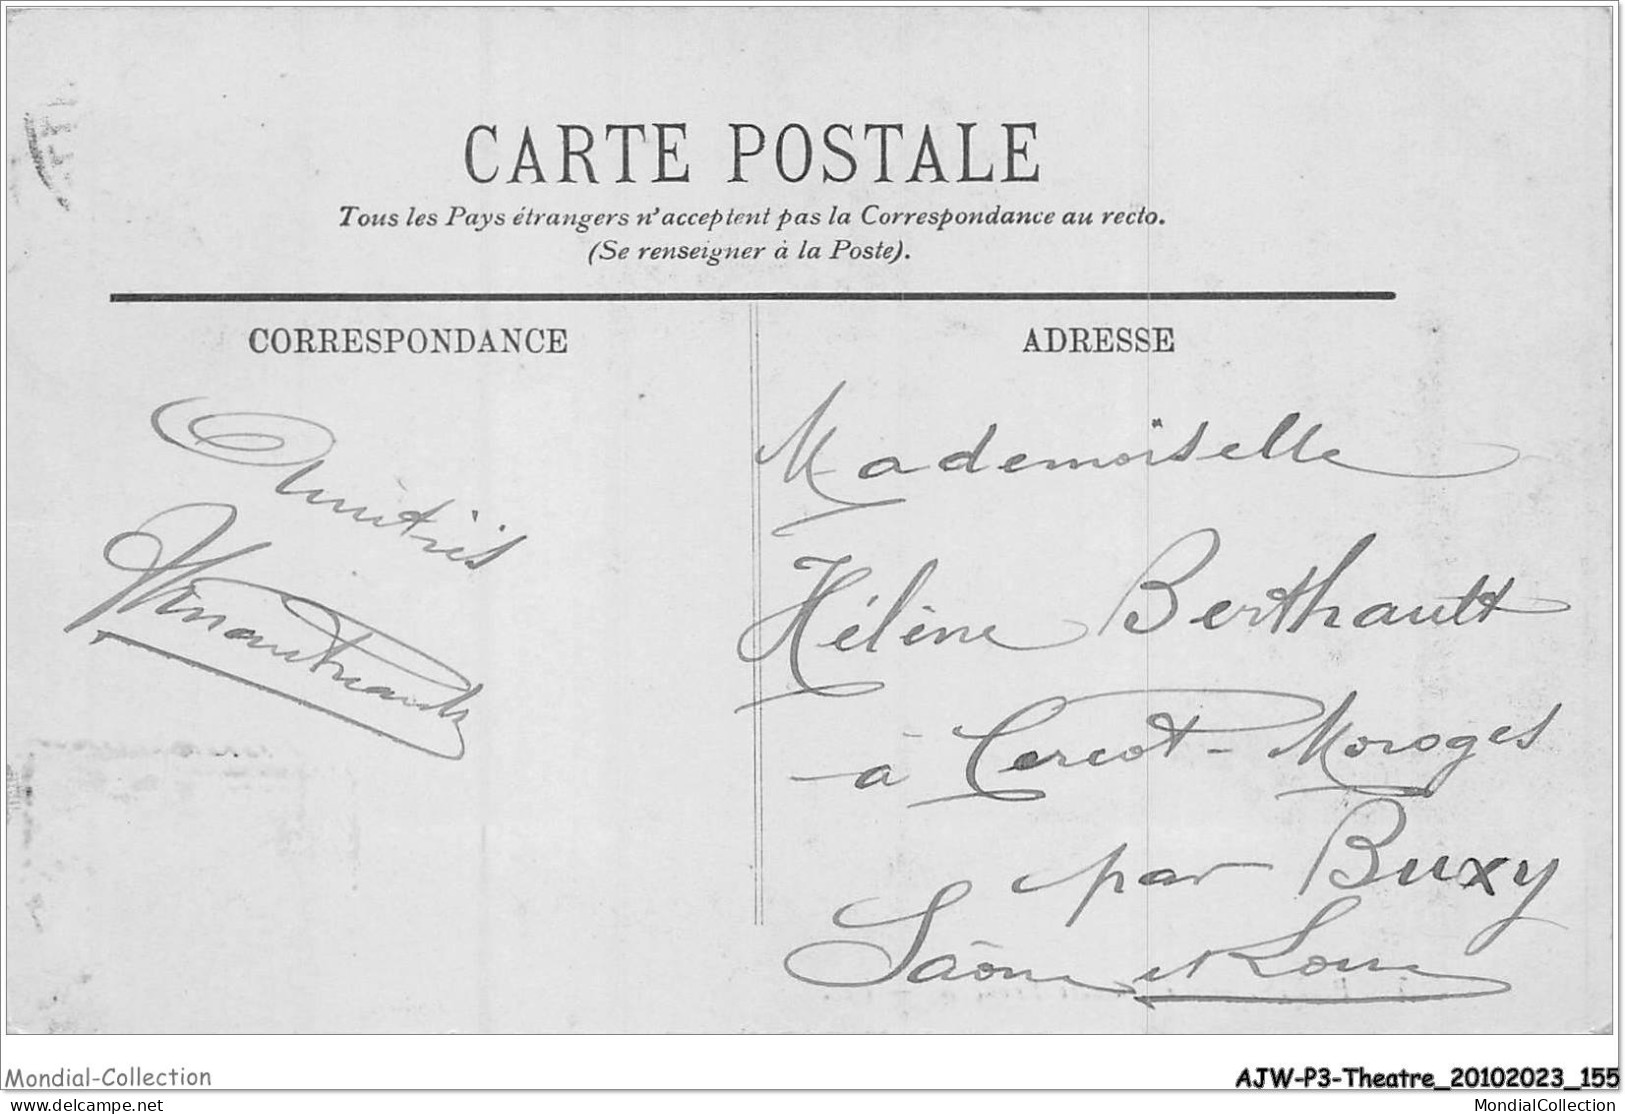 CARTE POSTALE
Tous les Pays étrangers n'acceptent pas la Correspondance au recto.
(Se renseigner à la Poste).
CORRESPONDANCE
ADRESSE
Amitiés
Mademoiselle
Hélène Berthault
à Cercot - Moroges
par Buxy
Saône et Loire
Mondial-Collection
AJW-P3-Theatre_20102023_155
www.delcampe.net
MondialCollection